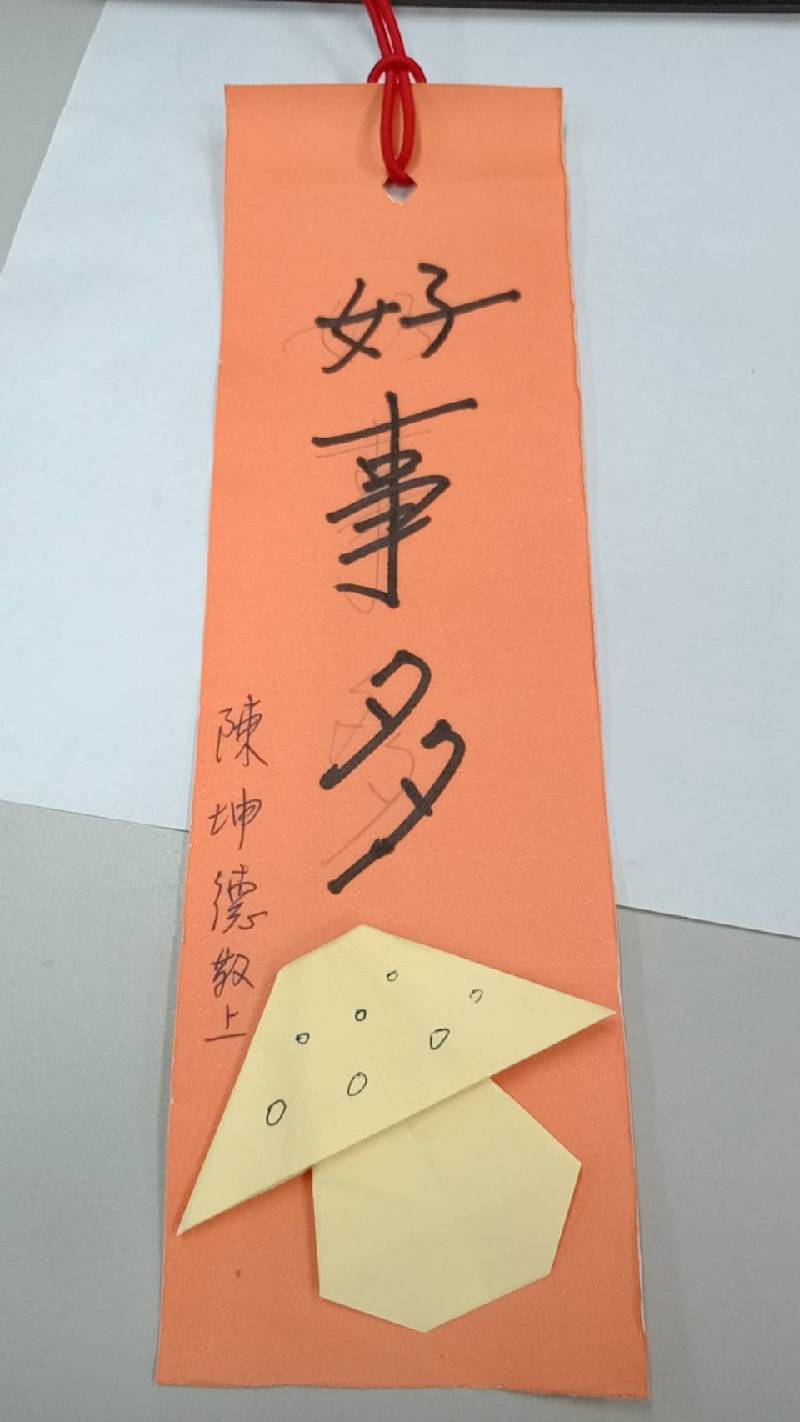 好事多
陳坤德敬上